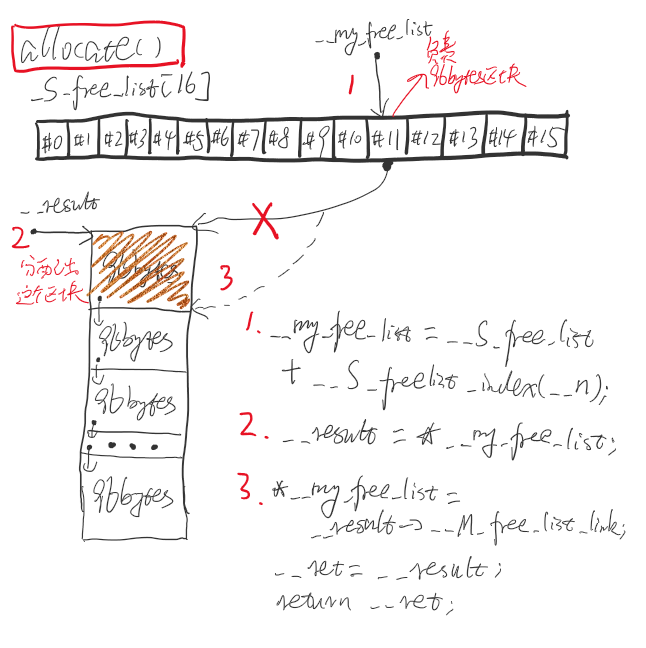 allocate()
__my_free_list
_S_free_list[16]
1
负责
96bytes区块
#0 #1 #2 #3 #4 #5 #6 #7 #8 #9 #10 #11 #12 #13 #14 #15
__result
2
X
分配出
这个区块
96bytes
3
96bytes
96bytes
...
96bytes
1. __my_free_list = __S_free_list
+ __S_freelist_index(__n);
2. __result = *__my_free_list;
3. *__my_free_list =
__result->__M_free_list_link;
__ret = __result;
return __ret;